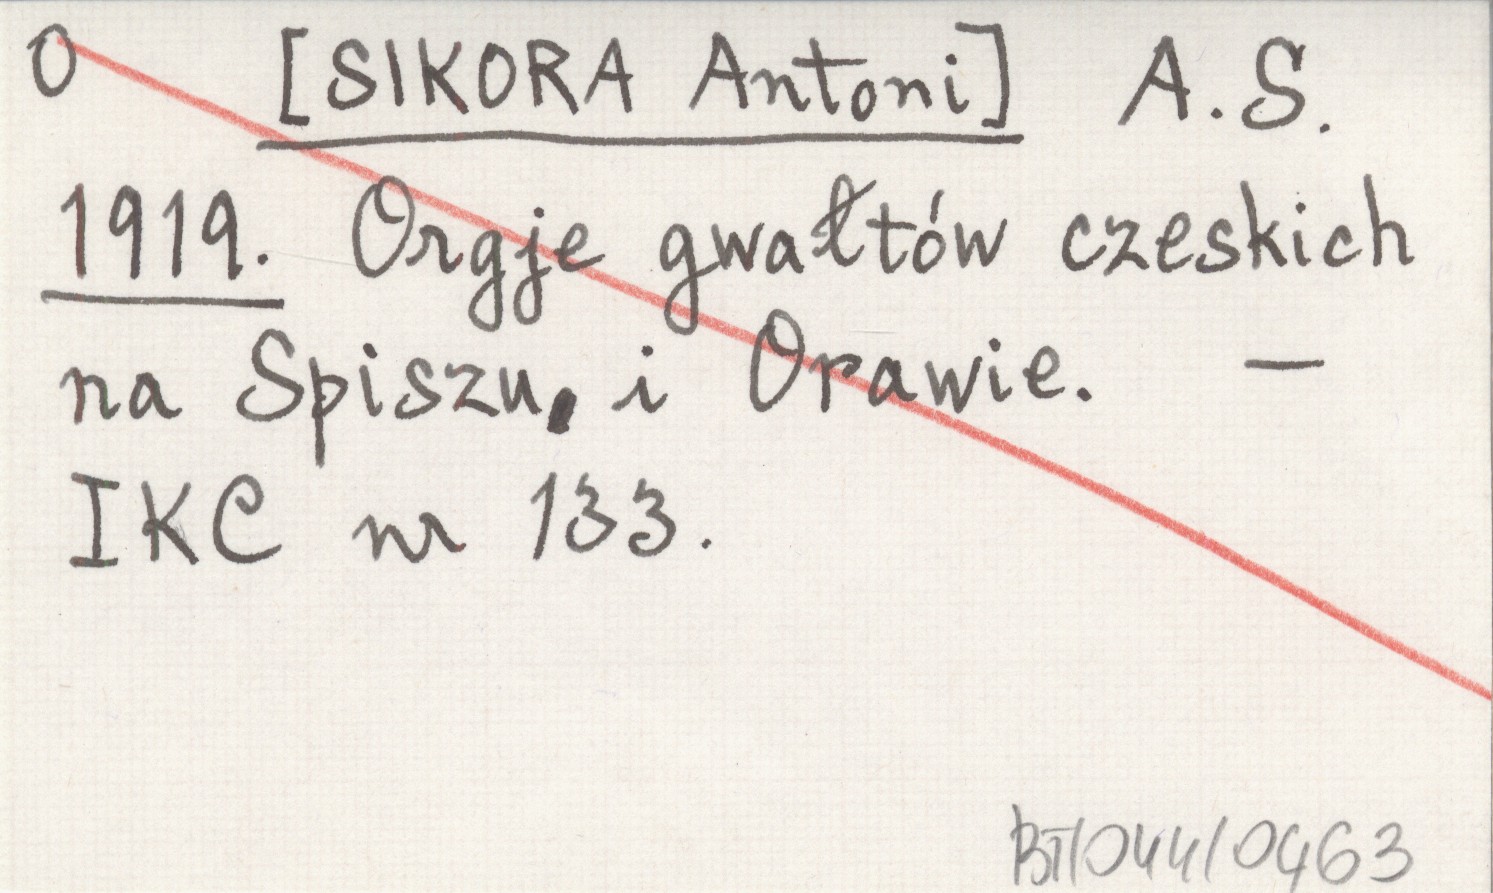 O [SIKORA Antoni] A.S.
1919. Orgje gwałtów czeskich
na Spiszu. i Orawie. —
IKC nr 133.
BT/044/0463